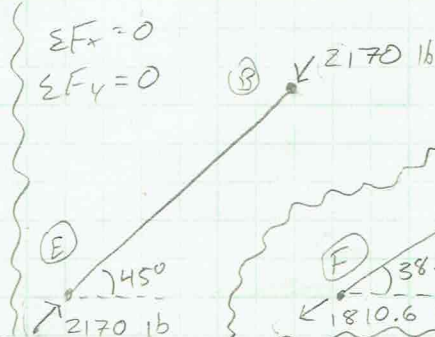 ΣFx = 0
ΣFy = 0
B
2170 lb
E
45°
2170 lb
F
38.
1810.6